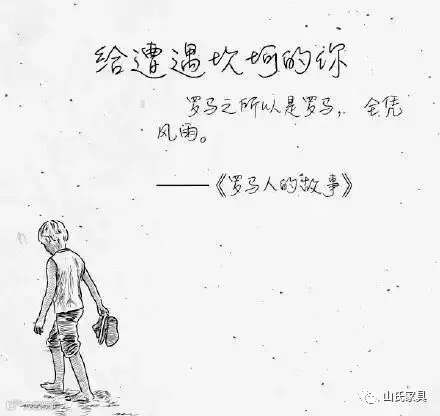 给遭遇坎坷的你
罗马之所以是罗马，全凭
风雨。
——《罗马人的故事》
山氏家具